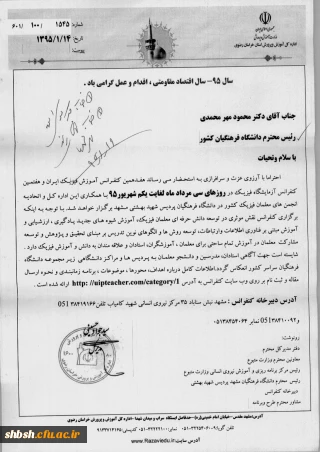 شماره : ۱۵۴۵ / ۱۰۰ / ۶۰۱
تاریخ : ۱۳۹۵/۱/۱۴
پیوست :
اداره کل آموزش و پرورش استان خراسان رضوی
سال ۹۵- سال اقتصاد مقاومتی ، اقدام و عمل گرامی باد .
جناب آقای دکتر محمود مهر محمدی
رئیس محترم دانشگاه فرهنگیان کشور
با سلام وتحیات
احتراما با آرزوی عزت و سرافرازی به استحضار می رساند هفدهمین کنفرانس آموزش فیزیک ایران و هفتمین
کنفرانس آزمایشگاه فیزیک در روزهای سی مرداد ماه لغایت یکم شهریور۹۵ با همکاری این اداره کل و اتحادیه
انجمن های معلمان فیزیک کشور در دانشگاه فرهنگیان پردیس شهید بهشتی مشهد برگزار خواهد شد. با توجه به اینکه
برگزاری کنفرانس نقش موثری در توسعه دانش حرفه ای معلمان فیزیک، آموزش شیوه های جدید یادگیری ، ارزشیابی و
آموزش مبتنی بر فناوری اطلاعات وارتباطات، توسعه روش ها و الگوهای نوین تدریس بر مبنای تحقیق و پژوهش و توسعه
مشارکت معلمان در آموزش تمام ساحتی برای معلمان ، آموزشگران، استادان و علاقه مندان به دانش و آموزش فیزیک دارد.
شایسته است جهت آگاهی استادان، مدرسین و دانشجو معلمان به پردیس ها و مراکز دانشگاهی زیر مجموعه دانشگاه
فرهنگیان سراسر کشور انعکاس گردد.اطلاعات کامل درباره اهداف، محورها ، موضوعات ، برنامه زمانبندی و نحوه ارسال
مقاله و ثبت نام بر روی وب سایت کنفرانس به آدرس http://uipteacher.com/category/1 ارائه شده است .
آدرس دبیرخانه کنفرانس : مشهد نبش سناباد ۳۵ مرکز نیروی انسانی شهید کامیاب تلفن ۰۵۱۳۸۴۱۹۱۶۶
و۰۵۱۳۸۴۱۰۰۹۲ نمابر ۰۵۱۳۸۴۵۴۰۶۴
رونوشت :
دفتر مدیرکل محترم
معاونین محترم وزارت متبوع
رئیس محترم مرکز برنامه ریزی و آموزش نیروی انسانی وزارت متبوع
رئیس محترم دانشگاه فرهنگیان مشهد پردیس شهید بهشتی
دبیرخانه کنفرانس
مشاور محترم طرح وبرنامه
آدرس سایت:www.Razavi.medu.ir
shbsh.cfu.ac.ir